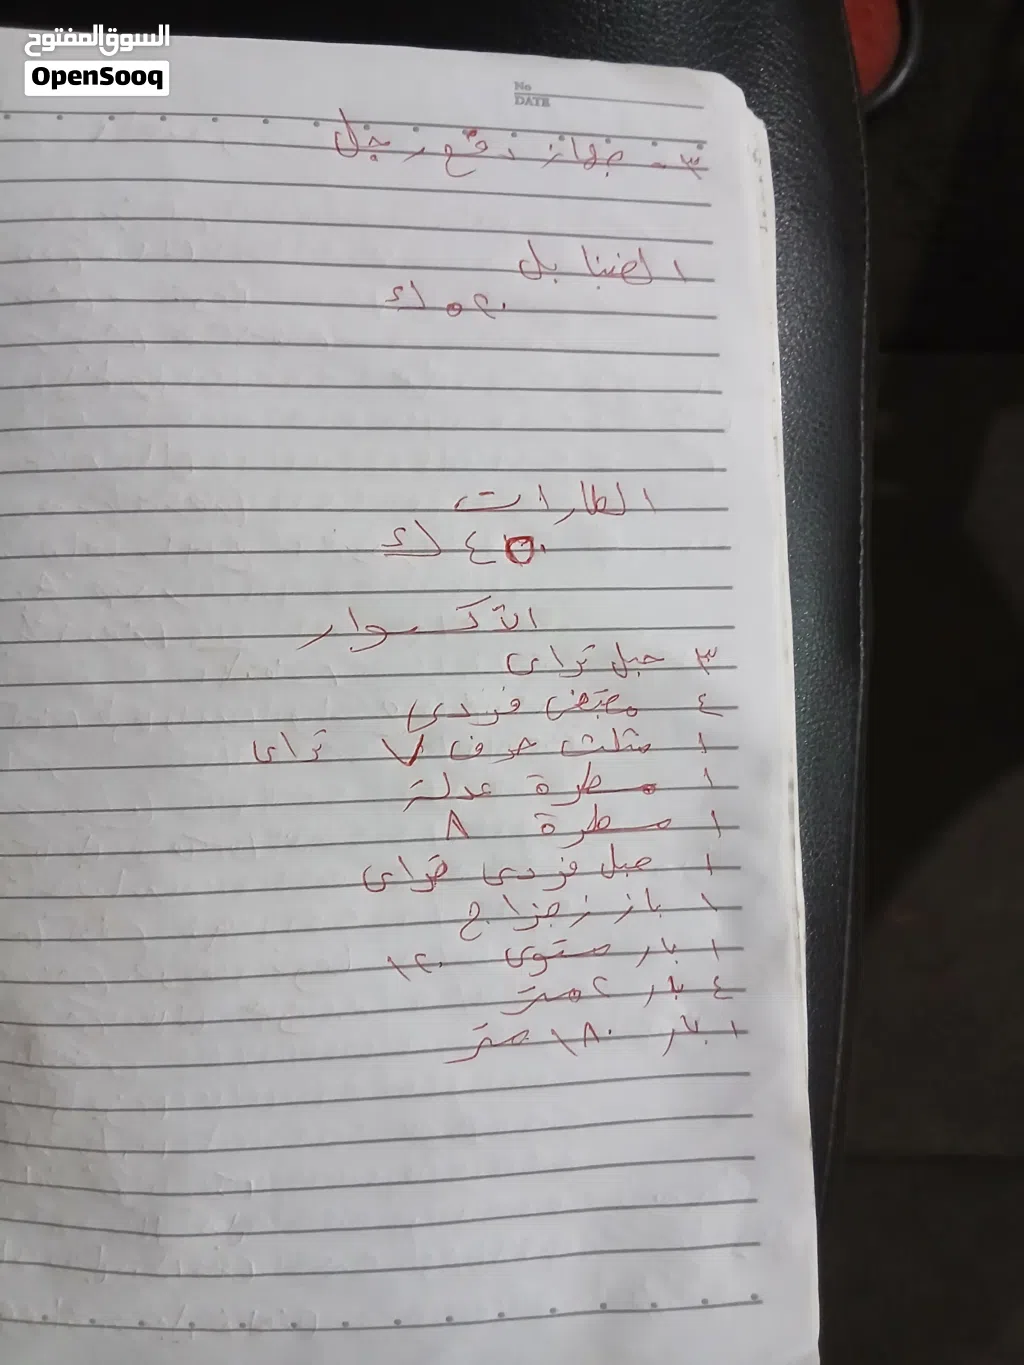 السوق المفتوح
OpenSooq
No
DATE
٣ - جهاز دفع رجل
الضنابل
٢٥٠ ك
الطارات
٤٥٠ ك
الاكسوار
٣ حبل تراي
٤ مقبض فردي
١ مثلث حرف V تراي
١ مسطرة عدلة
١ مسطرة ٨
١ حبل فردي تراي
١ باز زجزاج
١ بار مستوى ١٢٠
٤ بار ٢ متر
١ بار ١٨٠ متر